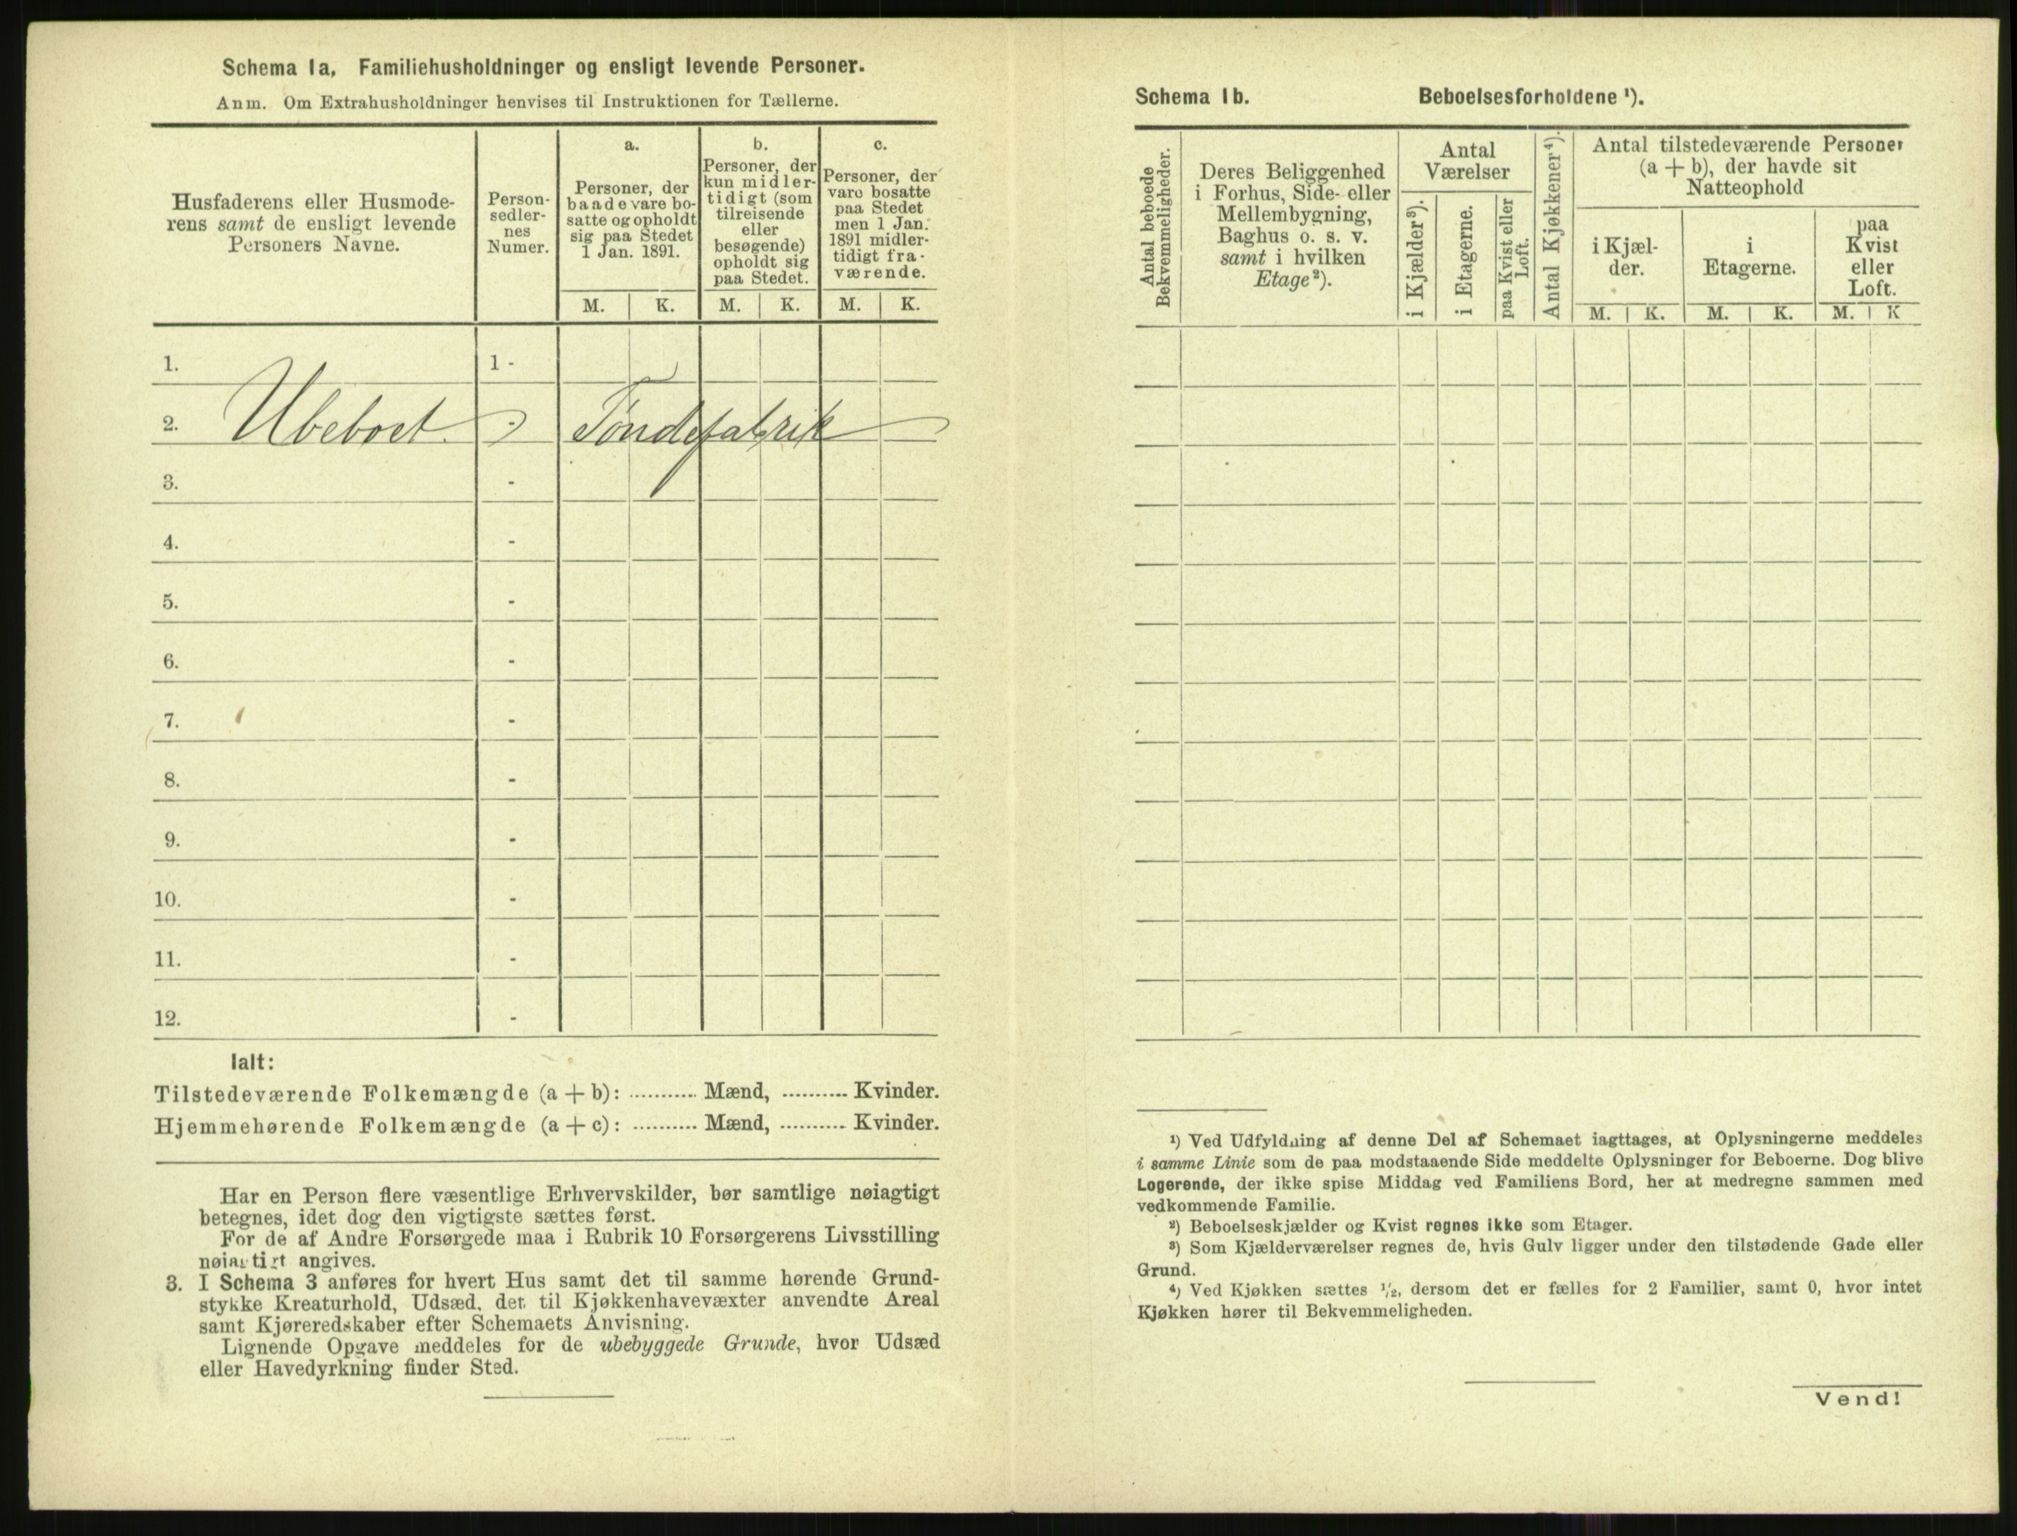 Schema 1a, Familiehusholdninger og ensligt levende Personer.
Anm. Om Extrahusholdninger henvises til Instruktionen for Tællerne.
Husfaderens eller Husmode-
rens samt de ensligt levende
Personers Navne.
Person-
sedler-
nes
Numer.
a.
Personer, der
baade vare bo-
satte og opholdt
sig paa Stedet
1 Jan. 1891.
b.
Personer, der
kun midler-
tidigt (som
tilreisende
eller
besøgende)
opholdt sig
paa Stedet.
c.
Personer, der
vare bosatte
paa Stedet
men 1 Jan.
1891 midler-
tidigt fra-
værende.
M. K. M. K. M. K.
1. 1 -
2. Ubeboet. - Tøndefabrik
3. -
4. -
5. -
6. -
7. -
8. -
9. -
10. -
11. -
12. -
Ialt:
Tilstedeværende Folkemængde (a + b): ........... Mænd, ........... Kvinder.
Hjemmehørende Folkemængde (a + c): ........... Mænd, ........... Kvinder.
Har en Person flere væsentlige Erhvervskilder, bør samtlige nøiagtigt
betegnes, idet dog den vigtigste sættes først.
For de af Andre Forsørgede maa i Rubrik 10 Forsørgerens Livsstilling
nøiagtigt angives.
3. I Schema 3 anføres for hvert Hus samt det til samme hørende Grund-
stykke Kreaturhold, Udsæd, det til Kjøkkenhavevæxter anvendte Areal
samt Kjøreredskaber efter Schemaets Anvisning.
Lignende Opgave meddeles for de ubebyggede Grunde, hvor Udsæd
eller Havedyrkning finder Sted.
Schema 1b. Beboelsesforholdene ¹).
Antal beboede
Bekvemmeligheder.
Deres Beliggenhed
i Forhus, Side- eller
Mellembygning,
Baghus o. s. v.
samt i hvilken
Etage²).
Antal
Værelser
i Kjælder³).
i Etagerne.
paa Kvist eller
Loft.
Antal Kjøkkener⁴).
Antal tilstedeværende Personer
(a + b), der havde sit
Natteophold
i Kjæl-
der.
i
Etagerne.
paa
Kvist
eller
Loft.
M. K. M. K. M. K
¹) Ved Udfyldning af denne Del af Schemaet iagttages, at Oplysningerne meddeles
i samme Linie som de paa modstaaende Side meddelte Oplysninger for Beboerne. Dog blive
Logerende, der ikke spise Middag ved Familiens Bord, her at medregne sammen med
vedkommende Familie.
²) Beboelseskjælder og Kvist regnes ikke som Etager.
³) Som Kjælderværelser regnes de, hvis Gulv ligger under den tilstødende Gade eller
Grund.
⁴) Ved Kjøkken sættes ½, dersom det er fælles for 2 Familier, samt 0, hvor intet
Kjøkken hører til Bekvemmeligheden.
Vend!